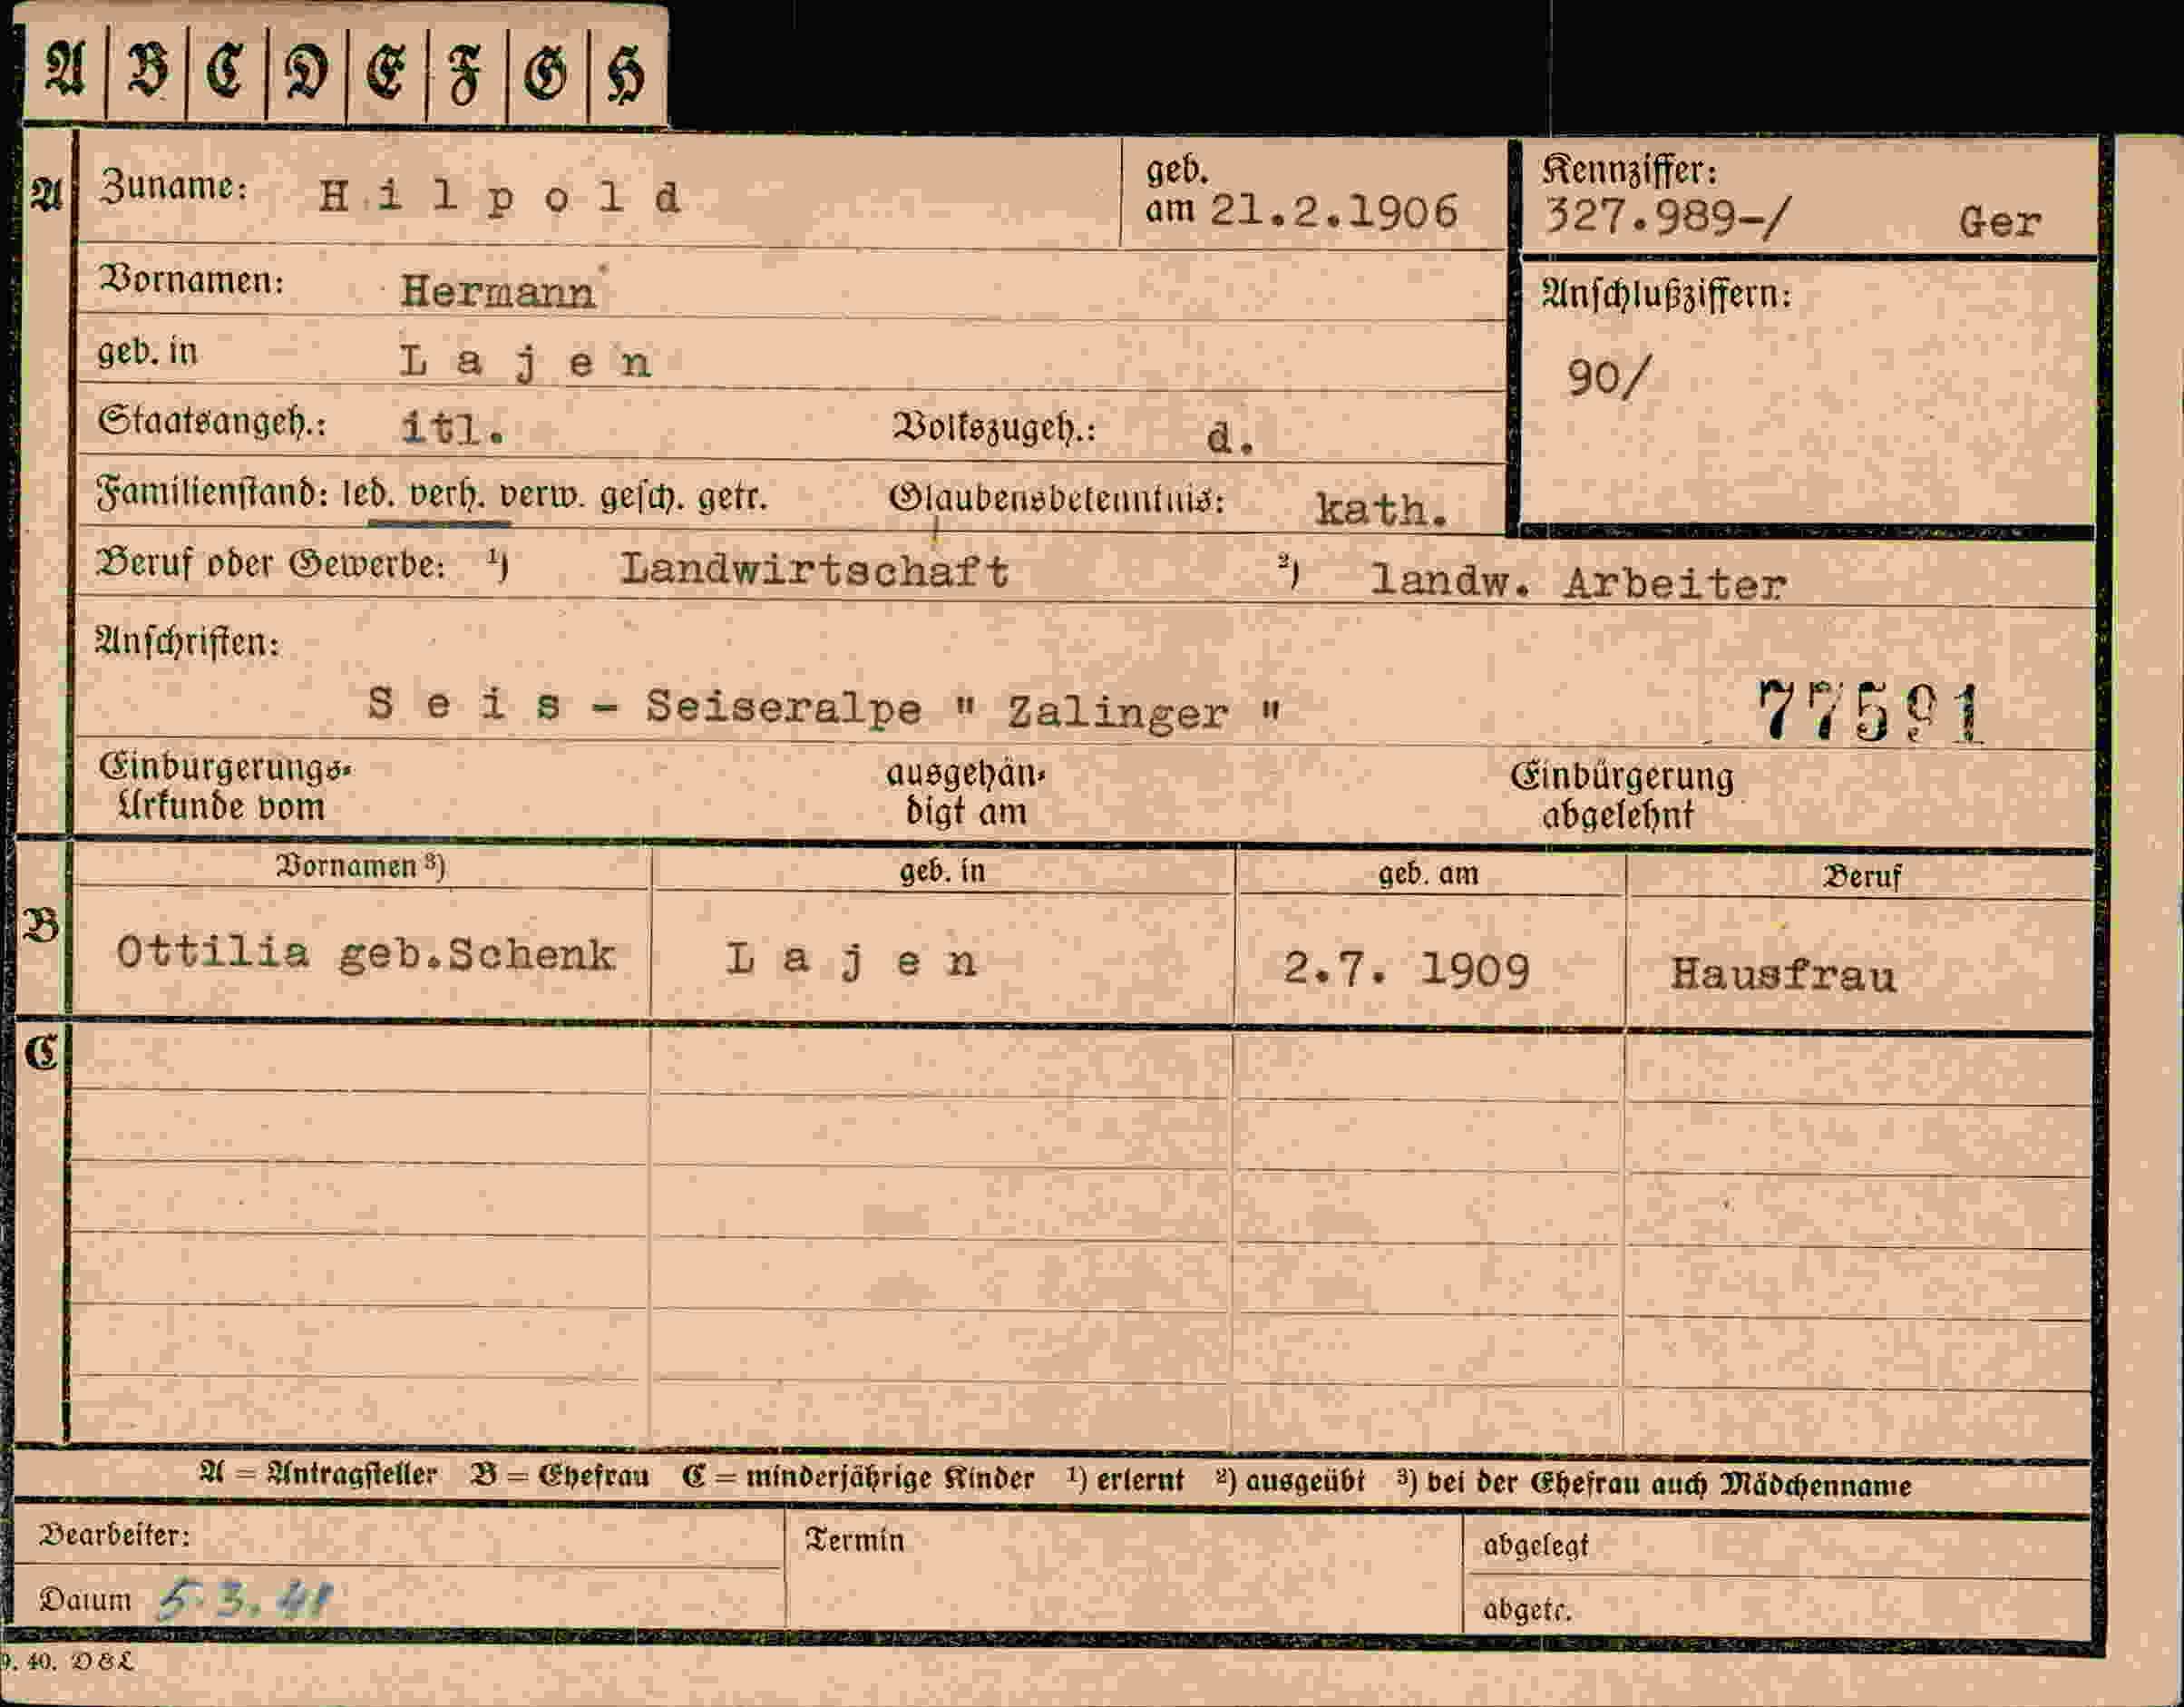 A B C D E F G H
A Zuname: Hilpold geb. am 21.2.1906 Kennziffer: 327.989-/ Ger
Vornamen: Hermann Anschlußziffern:
geb. in Lajen 90/
Staatsangeh.: itl. Volkszugeh.: d.
Familienstand: led. verh. verw. gesch. getr. Glaubensbekenntnis: kath.
Beruf oder Gewerbe: ¹) Landwirtschaft ²) landw. Arbeiter
Anschriften:
Seis - Seiseralpe " Zalinger " 77591
Einbürgerungs- ausgehän- Einbürgerung
Urkunde vom digt am abgelehnt
Vornamen ³) geb. in geb. am Beruf
B Ottilia geb.Schenk Lajen 2.7. 1909 Hausfrau
C
A = Antragsteller B = Ehefrau C = minderjährige Kinder ¹) erlernt ²) ausgeübt ³) bei der Ehefrau auch Mädchenname
Bearbeiter: Termin abgelegt
Datum 5.3.41 abgetr.
9. 40. D&L